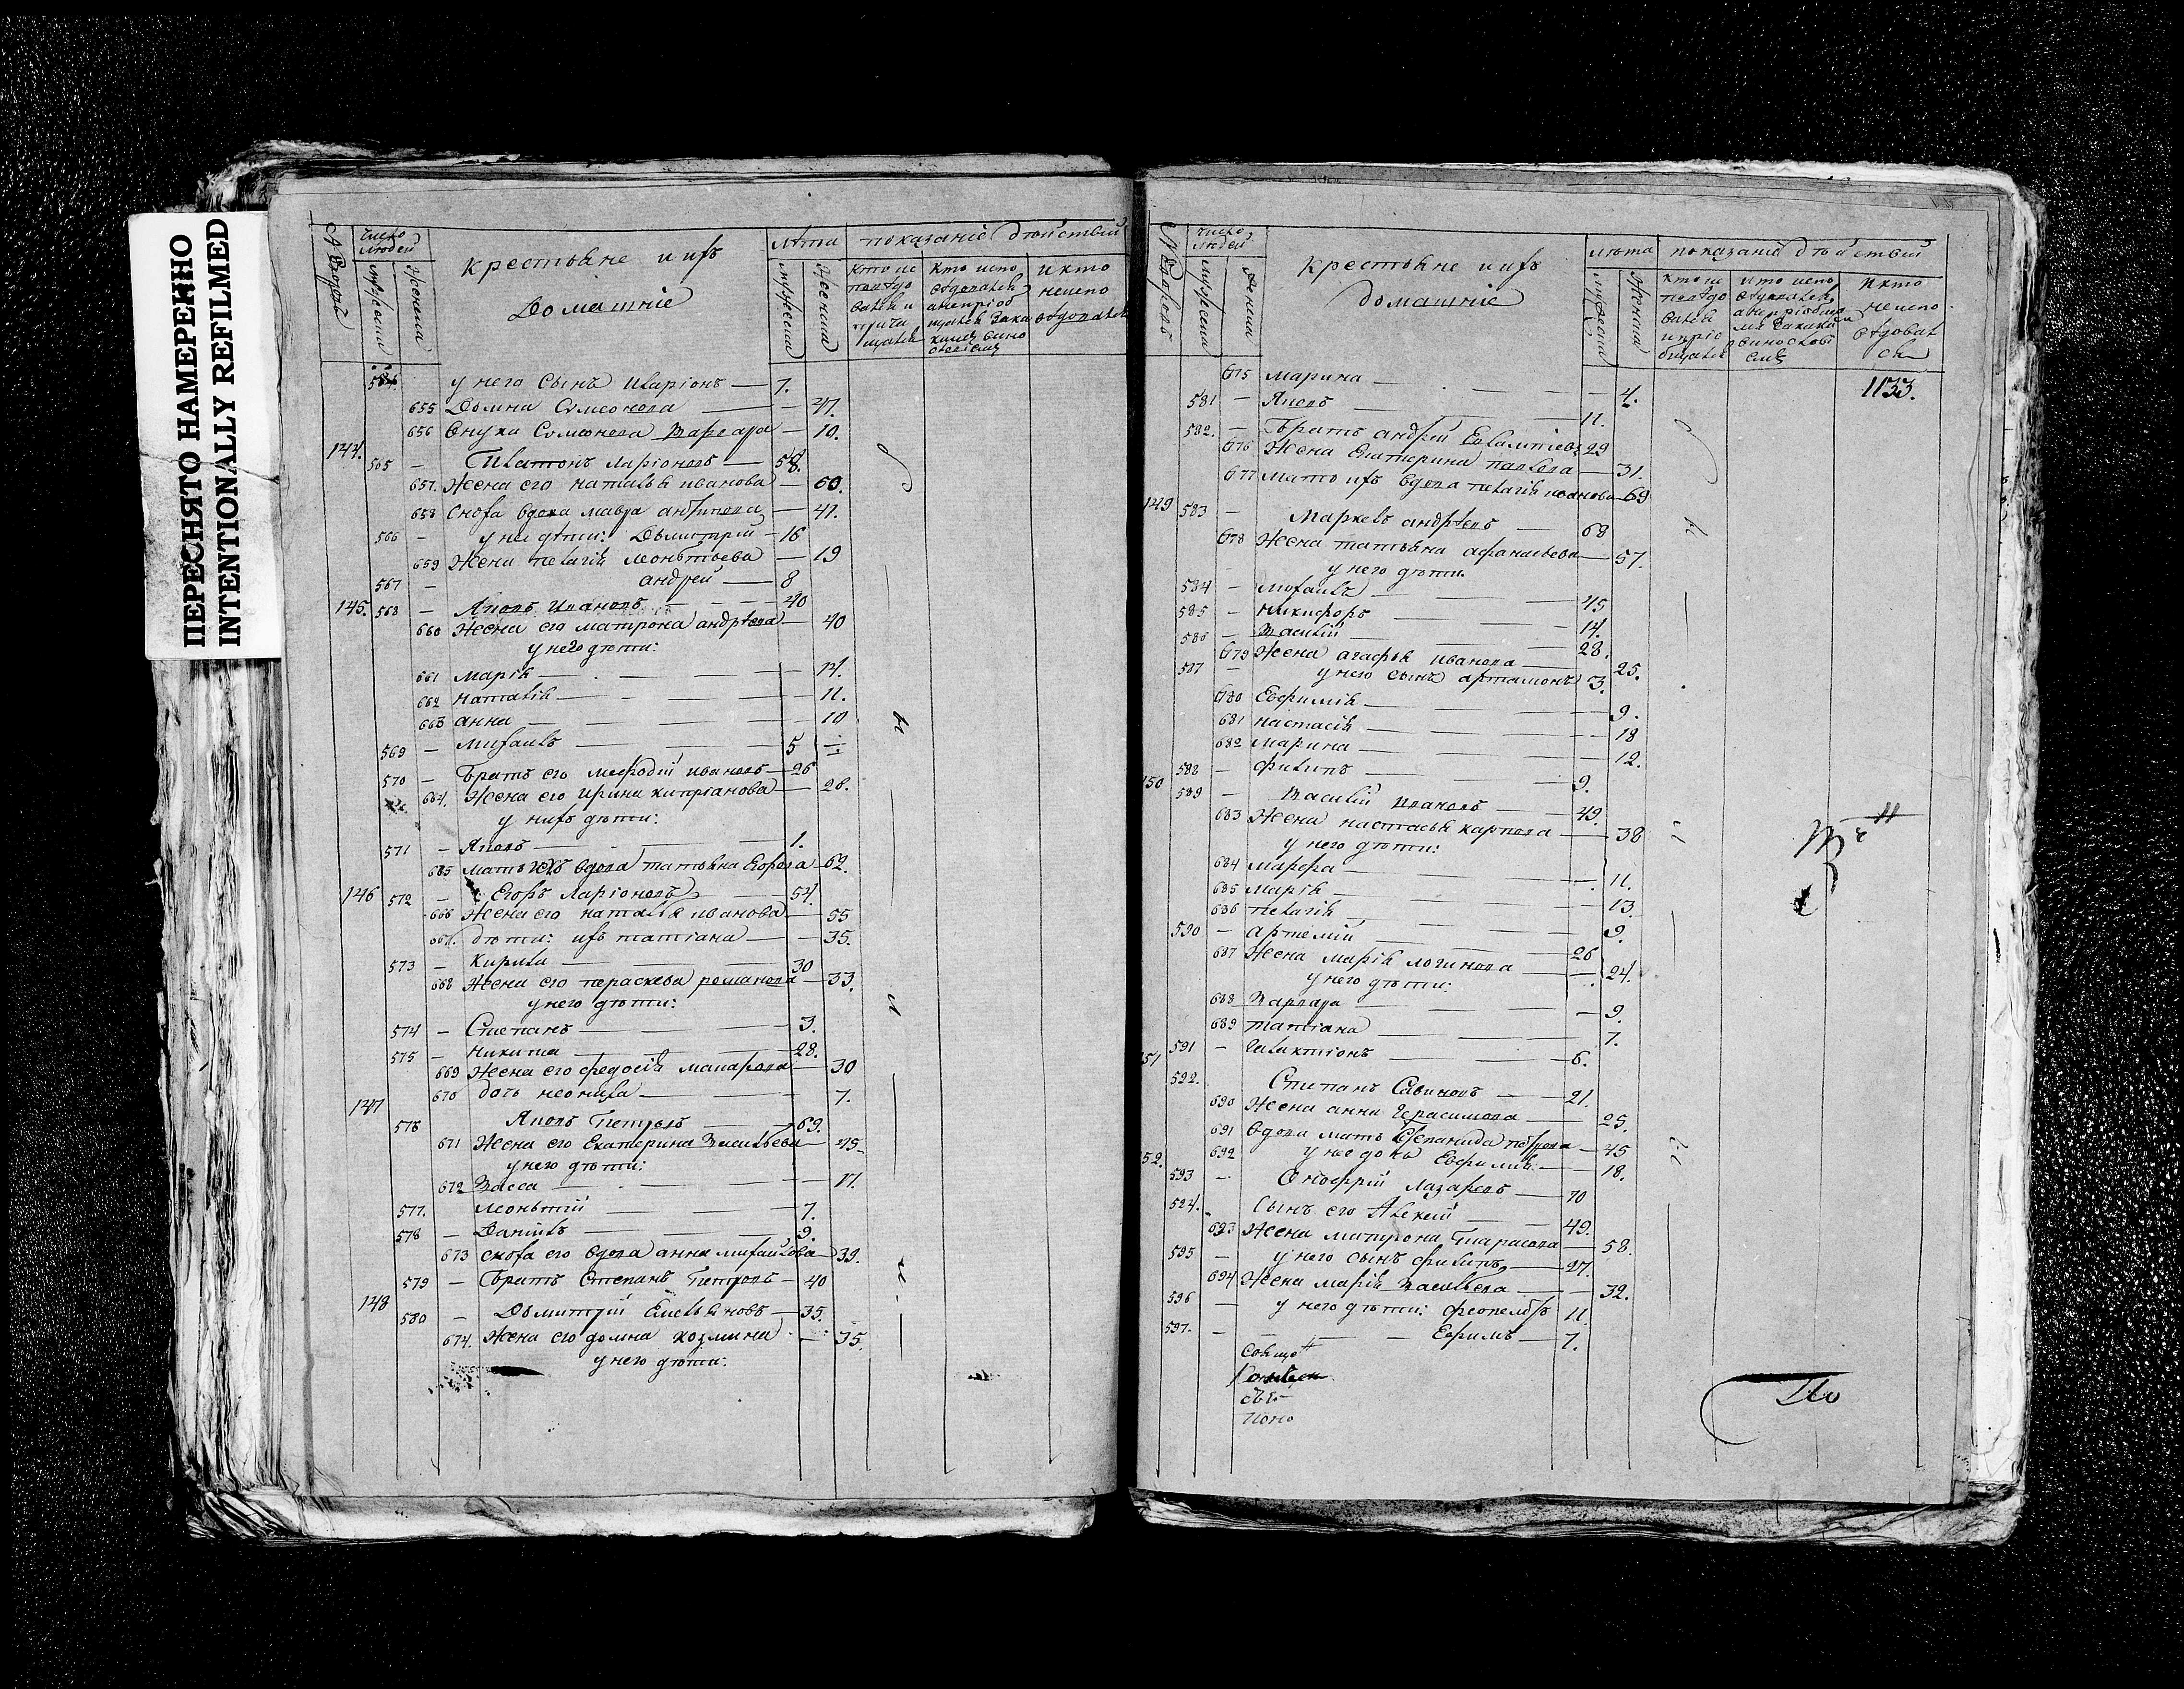 ПЕРЕСНЯТО НАМЕРЕННО
INTENTIONALLY REFILMED
число людей
мужеска
женска
крестьяне и ихъ
Домашніе
лѣта
мужеска
женска
показаніе дѣйствій
564. у него сынъ Иларіонъ — 7.
655 Домна Симеонова — 47.
656 Внука Симеонова Варвара — 10.
144. 565 — Платонъ Ларіоновъ — 58.
657. Жена его наталья иванова — 60.
658 Сноха вдова мавра антипова — 41.
566 — у нея дѣти: Дьмитрій — 16
659 Жена пелагія леонтьева — 19
567 — андрей — 8
145. 568 — Яковъ Ивановъ — 40
660 Жена его матрона андрѣева — 40
у него дѣти:
661 Марія — 14.
662 наталія — 11.
663 анна — 10
569 — михаилъ — 5
570 — братъ его мефодій ивановъ — 26
664. Жена его ирина кипріанова — 28.
у нихъ дѣти:
571 — Яковъ — 1.
665 мать ихъ вдова татьяна Егорова — 62.
146 572 — Егоръ Ларіоновъ — 54.
666 Жена его наталія иванова — 55
667. дѣти: ихъ татіана — 35.
573 — Кирила — 30
668 Жена его параскева романова — 33.
у него дѣти:
574 — Степанъ — 3.
575 — никита — 28.
669 Жена его федосія макарова — 30
670 дочь неонила — 7.
147
576 Яковъ Петровъ — 69.
671 Жена его Екатерина Васильева — 45
у него дѣти:
672 Васса — 17.
577. леонтій — 7.
578 — Даніилъ — 9.
673 сноха его вдова анна михаилова — 39.
579 — братъ Степанъ Петровъ — 40
148
580 — Дьмитрій Емельяновъ — 35.
674. Жена его домна козмина — 35.
у него дѣти:
число людей
мужеска
женска
крестьяне и ихъ
домашніе
лѣта
мужеска
женска
показаніе дѣйствій
675 марина — 4.
1133.
581 — Яковъ — 11.
582. — братъ андрей Евлампіевъ 29
676 Жена Екатерина павлова — 31.
677 мать ихъ вдова пелагія иванова — 69
149 583 — Маркелъ андрѣевъ — 68
678 Жена татьяна афанасьева — 57.
у него дѣти.
584 — михаилъ — 45
585 — никифоръ — 14.
586 — Василій — 28.
679 Жена агафья иванова — 25.
587 — у него сынъ артамонъ 3.
680 Евфимія — 9.
681 настасія — 18
682 марина — 12.
588 — филипъ — 9.
150 589 — Василій Ивановъ — 49.
683 Жена настасья карпова — 38
у него дѣти:
684 марфа — 11.
685 марія — 13
686 пелагія — 9.
590 — артемій — 26
687 Жена марія логинова — 24.
у него дѣти:
688 Варвара — 9.
689 татіана — 7.
591 — Галактіонъ — 6.
151
592. Степанъ Савиновъ — 21.
690 Жена анна Герасимова — 25.
691 вдова мать Степанида петрова — 45
692 у нее дочь Евфимія — 18.
152.
593 — Онофрій Лазаревъ — 70
594. Сынъ его Алексій — 49.
693 Жена матрона Тарасова — 58.
595 — у него сынъ филипъ — 27.
694 Жена марія васильева — 32.
596 — у него дѣти: феопемптъ 11.
597. — Ефимъ — 7.